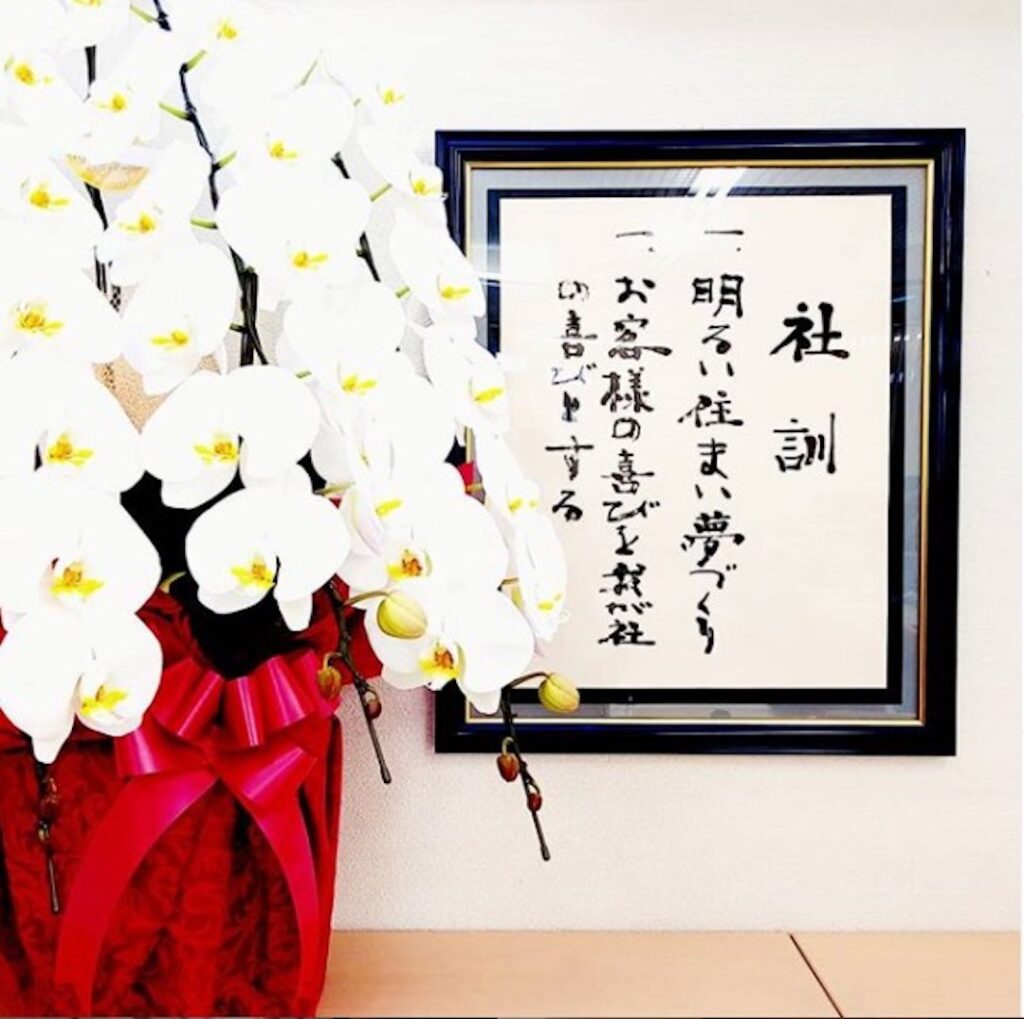 社訓
一、明るい住まい夢づくり
一、お客様の喜びを我が社
の喜びとする